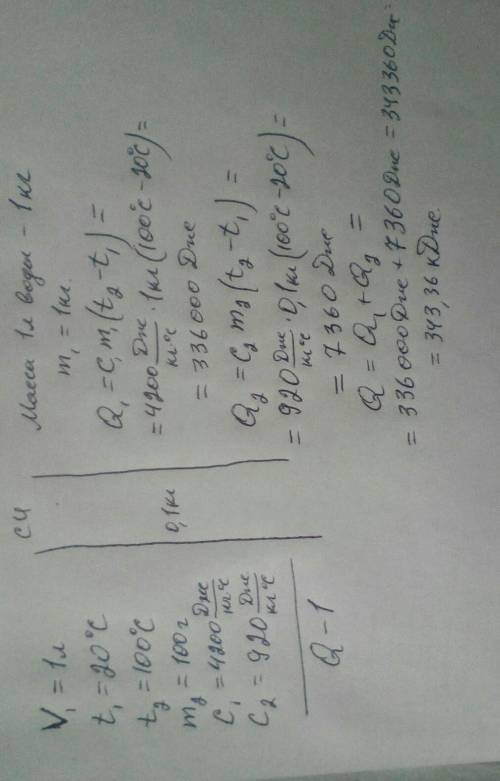 V₁ = 1л
t₁ = 20°C
t₂ = 100°C
m₂ = 100г
C₁ = 4200 Дж/кг°C
C₂ = 920 Дж/кг°C
Q - ?
СИ
0,1кг
Масса 1л воды - 1кг
m₁ = 1кг.
Q₁ = C₁m₁(t₂ - t₁) =
= 4200 Дж/кг°C · 1кг(100°C - 20°C) =
= 336000 Дж
Q₂ = C₂ m₂ (t₂ - t₁) =
= 920 Дж/кг°C · 0,1кг(100°C - 20°C) =
= 7360 Дж
Q = Q₁ + Q₂ =
= 336000Дж + 7360Дж = 343360Дж =
= 343,36 кДж.